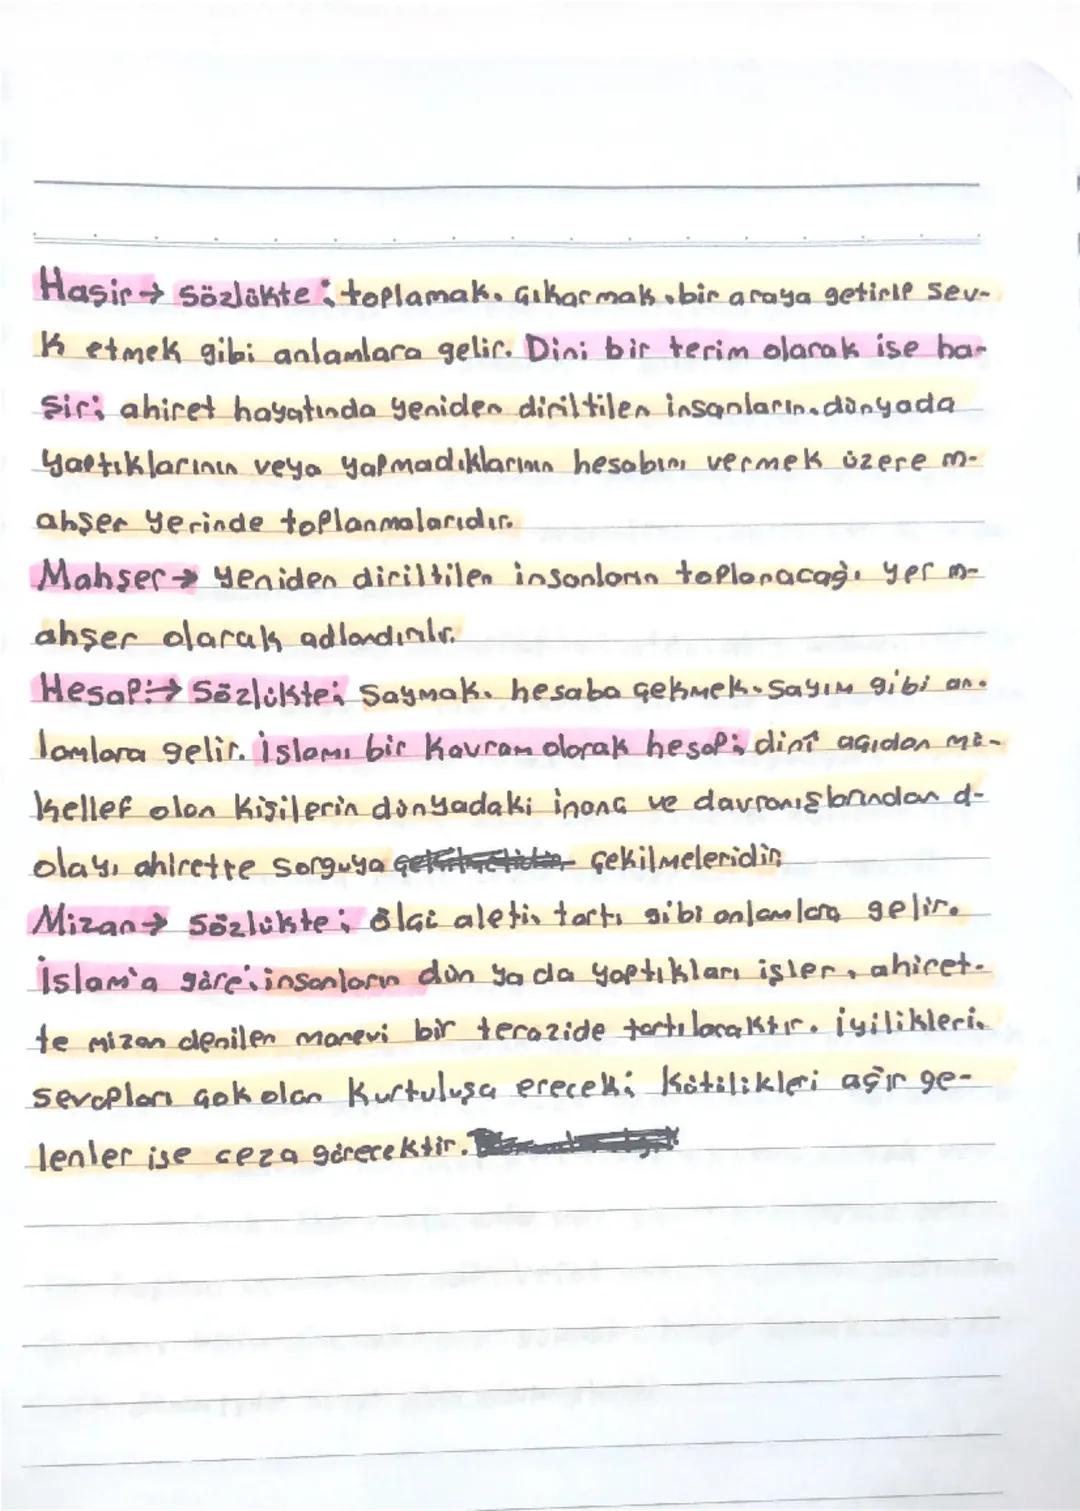 Haşir→ Sözlükte; toplamak, çıkarmak, bir araya getirip sev-
k etmek gibi anlamlara gelir. Dini bir terim olarak ise ha-
şir; ahiret hayatında yeniden diriltilen insanların, dünyada
yaptıklarının veya yapmadıklarının hesabını vermek üzere m-
ahşer yerinde toplanmalarıdır.
Mahşer→ yeniden diriltilen insanların toplanacağı yer m-
ahşer olarak adlandırılır.
Hesap:→ Sözlükte; Saymak, hesaba çekmek, sayım gibi an-
lamlara gelir. İslamı bir kavram olarak hesap; dinî açıdan mü-
kellef olan kişilerin dünyadaki inanç ve davranışlarından d-
olayı ahirette sorguya çekilmeleridir
Mizan→ Sözlükte; ölçü aleti, tartı gibi anlamlara gelir.
İslam'a göre; insanların dün ya da yaptıkları işler, ahiret-
te mizan denilen manevi bir terazide tartılacaktır. iyilikleri,
sevapları çok olan kurtuluşa erecek; kötülükleri ağır ge-
lenler ise ceza görecektir.